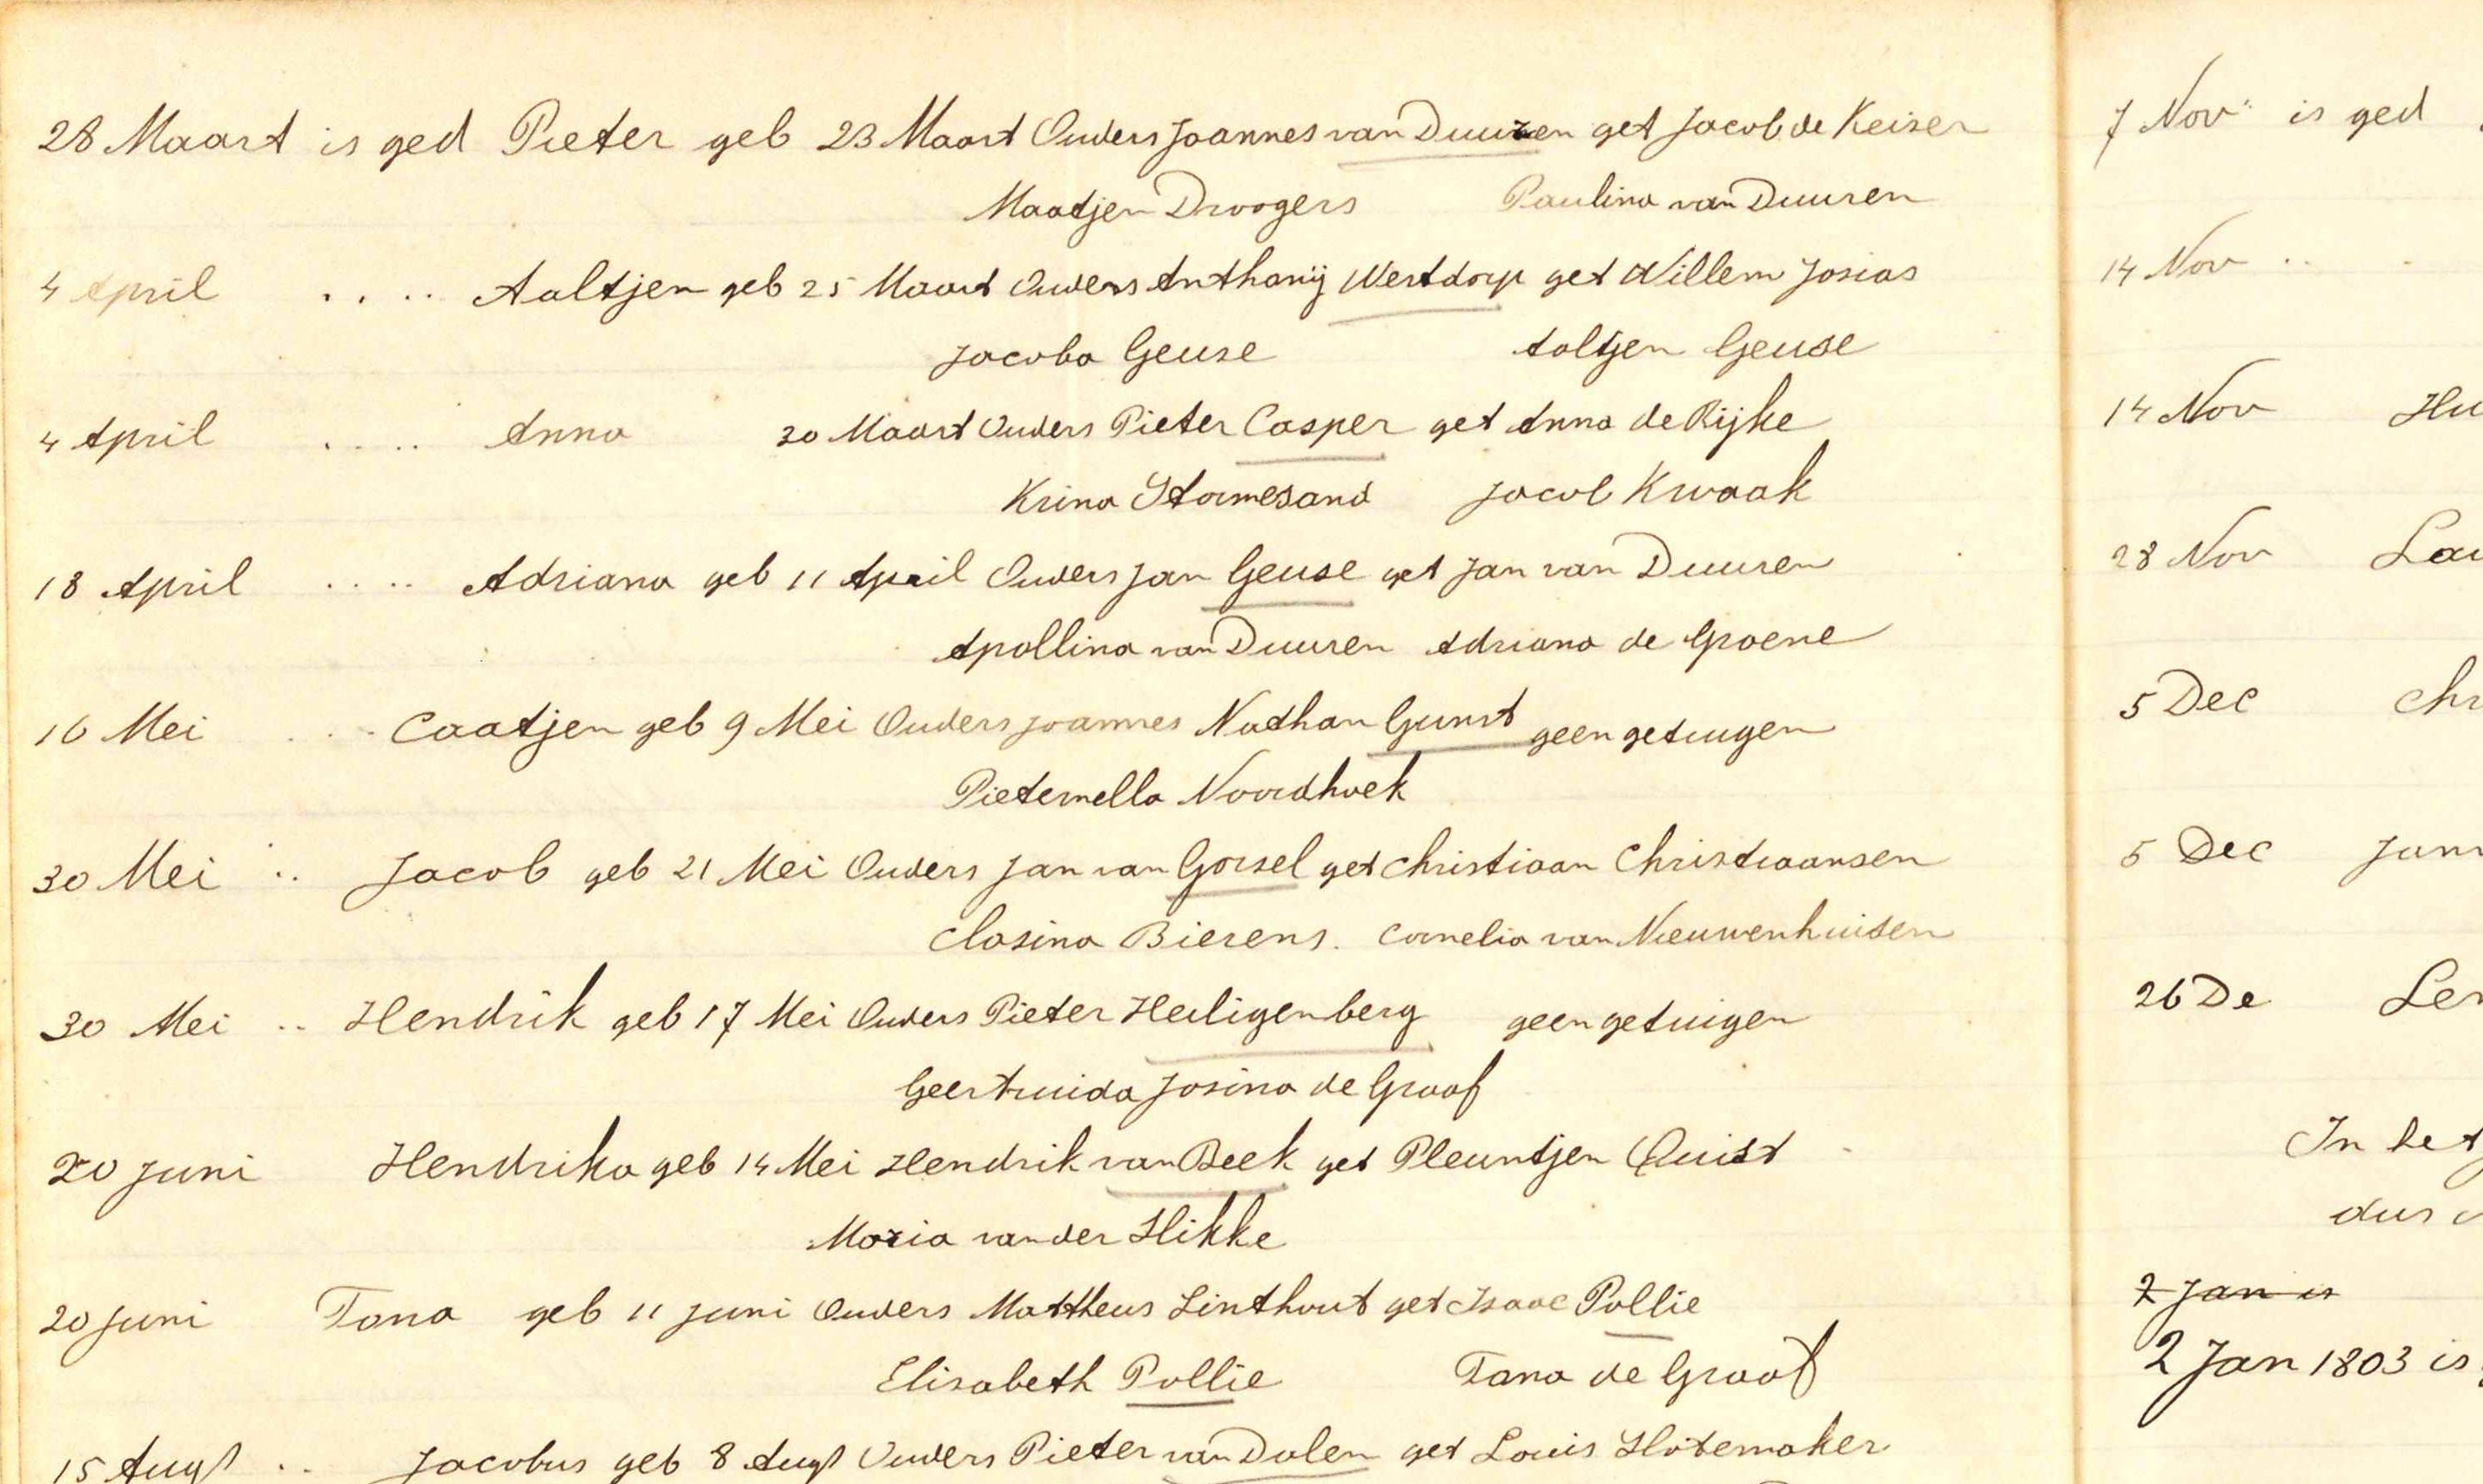 28 Maart is ged Pieter geb 23 Maart Ouders Joannes van Duuren get Jacob de Keiser
Maatjen Droogers Paulina van Duuren
4 April .... Aaltjen geb 25 Maart Ouders Anthonij Westdorp get Willem Josias
Jacoba Geuse Aaltjen Geuse
4 April .... Anna 30 Maart Ouders Pieter Casper get Anna de Rijke
Krina Stormesand Jacob Kwaak
18 April .... Adriana geb 11 April Ouders Jan Geuse get Jan van Duuren
Apollina van Duuren Adriana de Groene
16 Mei ... Caatjen geb 9 Mei Ouders Joannes Nathan Gunst geen getuigen
Pieternella Noordhoek
30 Mei .. Jacob geb 21 Mei Ouders Jan van Gorsel get Christiaan Christiaansen
Clasina Bierens. Cornelia van Nieuwenhuisen
30 Mei .. Hendrik geb 17 Mei Ouders Pieter Heiligenberg geen getuigen
Geertruida Josina de Graaf
20 Juni Hendrika geb 14 Mei Hendrik van Beek get Pleuntjen Quist
Maria van der Slikke
20 Juni Tana geb 11 Juni Ouders Mattheus Linthout get Isaac Pollie
Elisabeth Pollie Tana de Graaf
15 Augt .. Jacobus geb 8 Augt Ouders Pieter van Dalen get Louis Slotemaker
7 Nov is ged
14 Nov ..
14 Nov Hu
28 Nov Lau
5 Dec Chr
5 Dec Jann
26 De Len
In het
dus
2 Jan is
2 Jan 1803 is